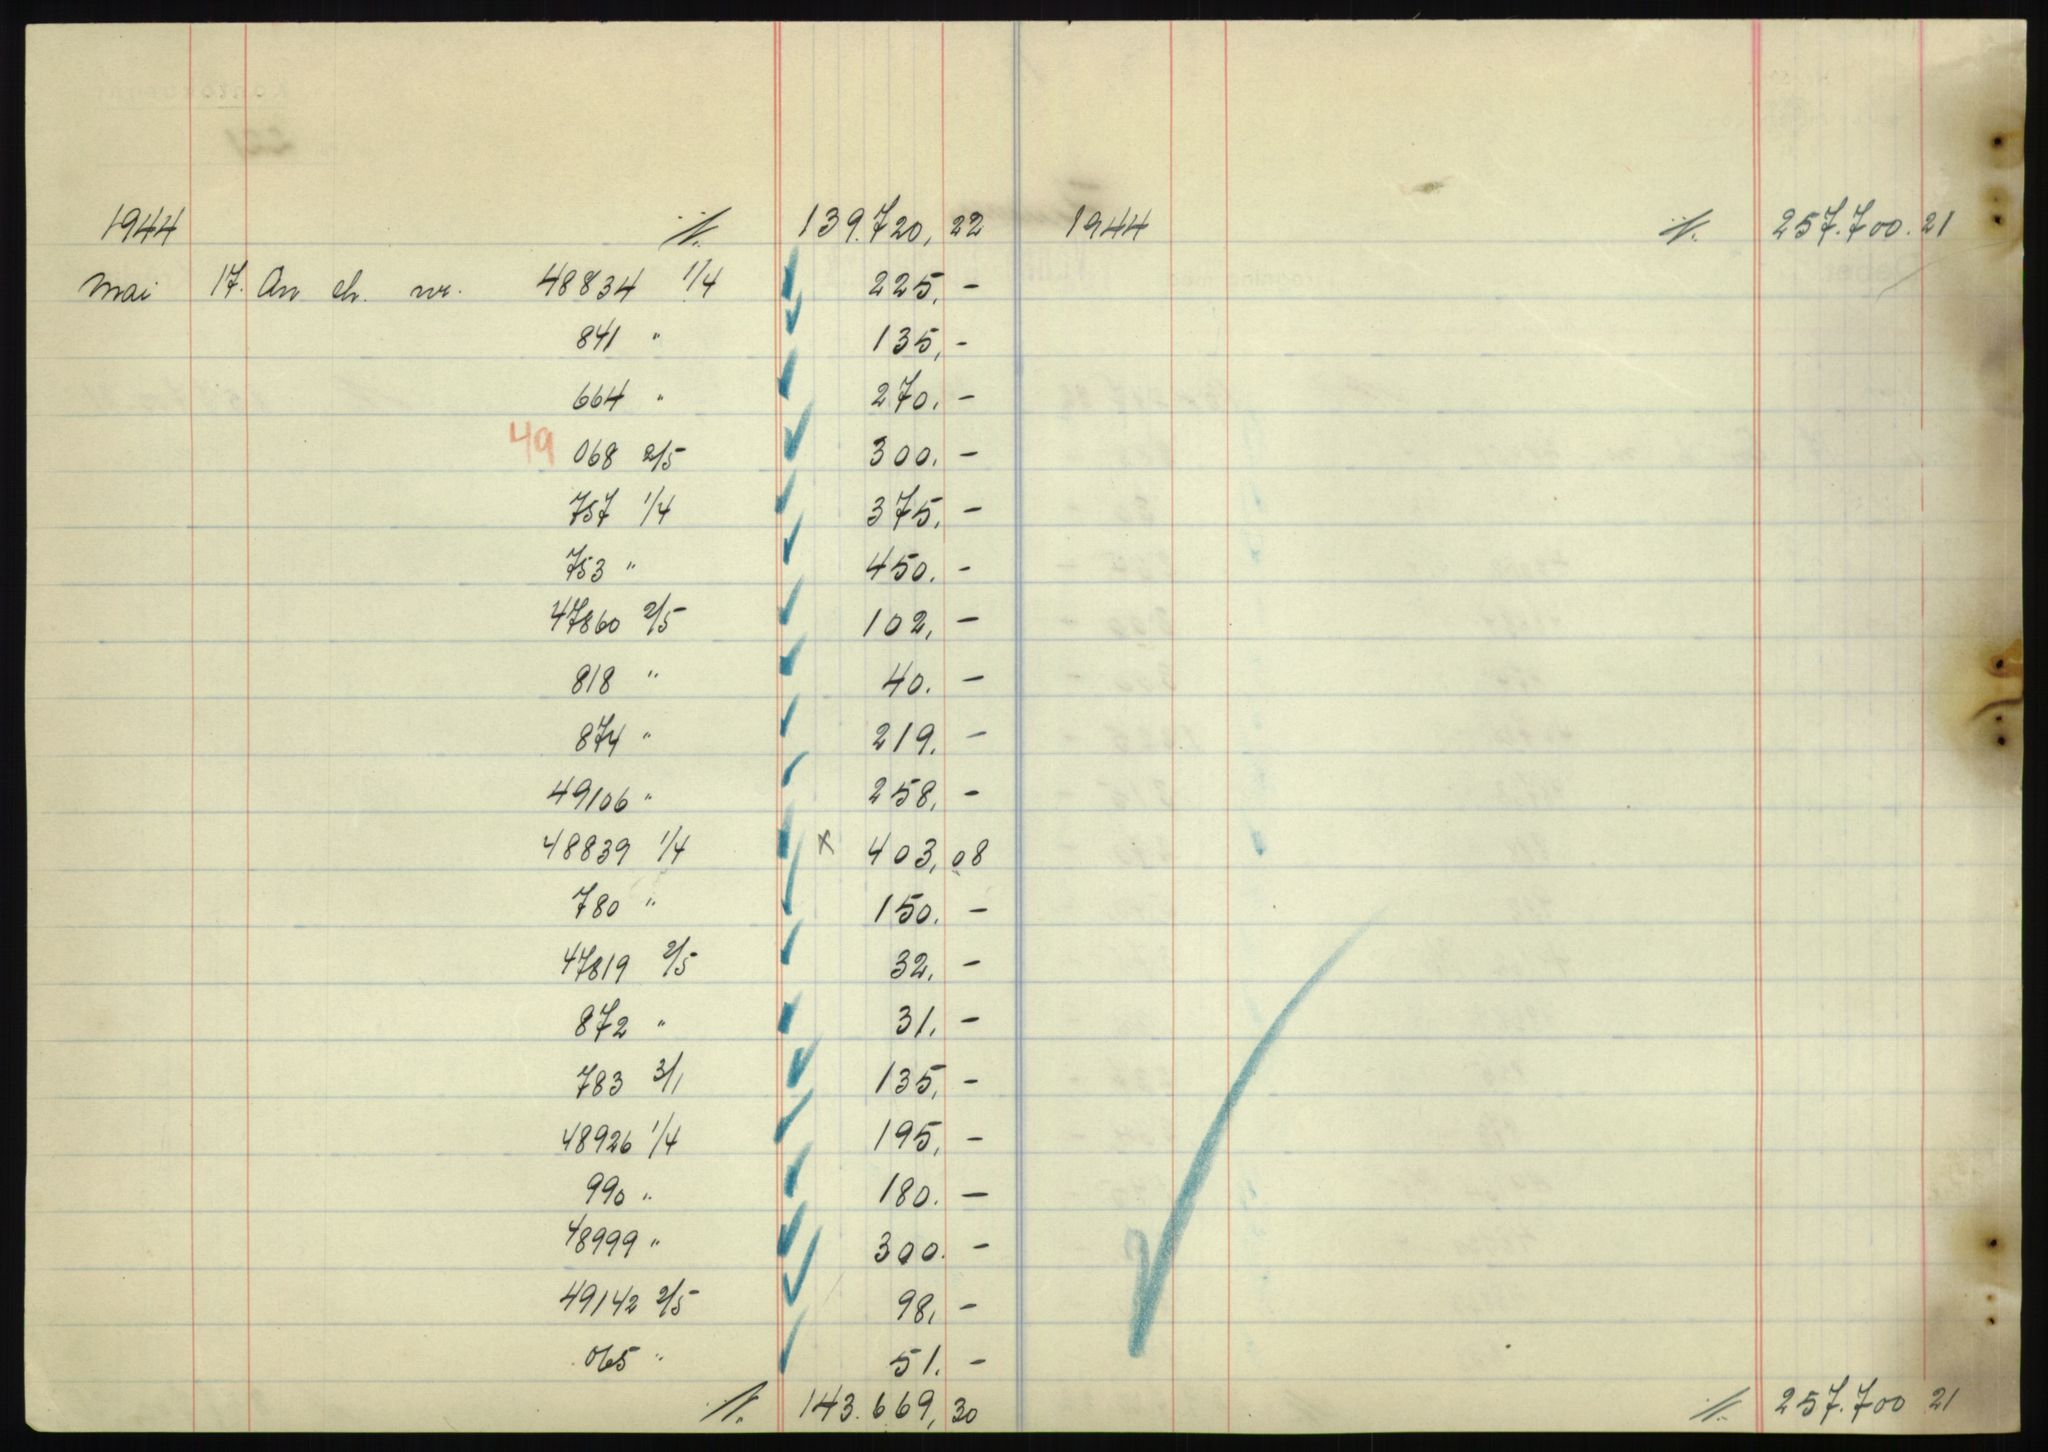 1944 ·/. 139.720,22 1944 ·/. 257.700.21
Mai 17. An ch. nr. 48834 1/4 225,-
841 " 135,-
664 " 270.-
49 068 2/5 300.-
757 1/4 375,-
753 " 450.-
47860 2/5 102,-
818 " 40.-
874 " 219.-
49106 " 258,-
48839 1/4 x 403,08
780 " 150.-
47819 2/5 32,-
872 " 31.-
783 3/1 135,-
48926 1/4 195,-
990 " 180.-
48999 " 300.-
49142 2/5 98,-
065 " 51.-
·/. 143.669,30 ·/. 257.700 21